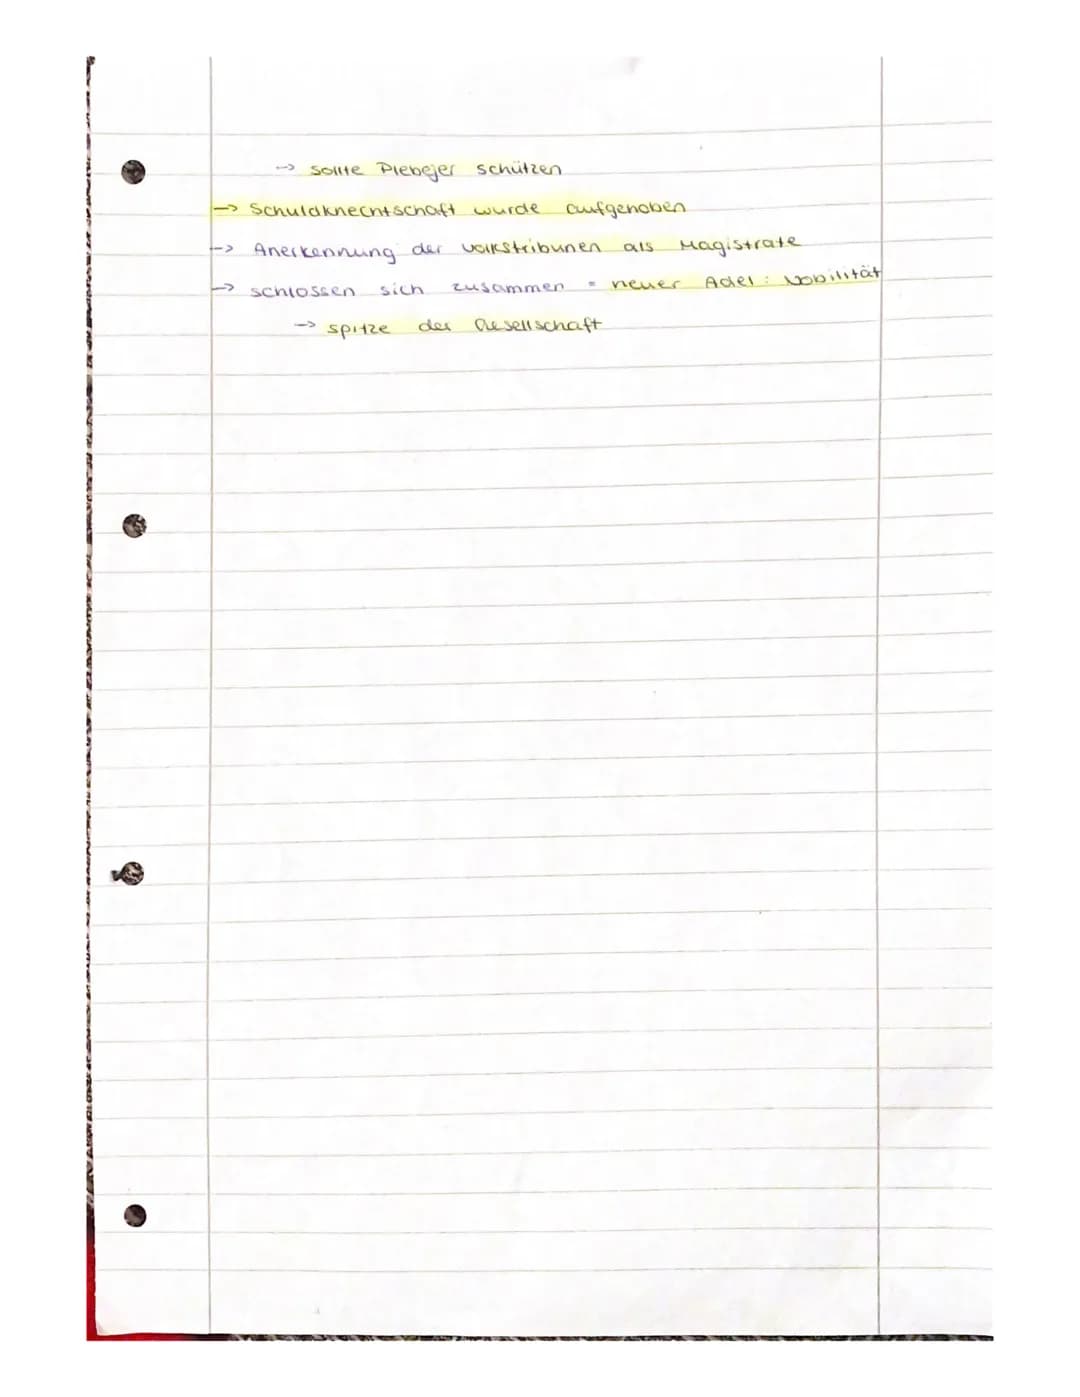 → sollte Plebejer schützen
→ Schuldknechtschaft wurde aufgehoben
→ Anerkennung der Volkstribunen als Magistrate
→ schlossen sich zusammen = neuer Adel: Nobilität
→ spitze der Gesellschaft